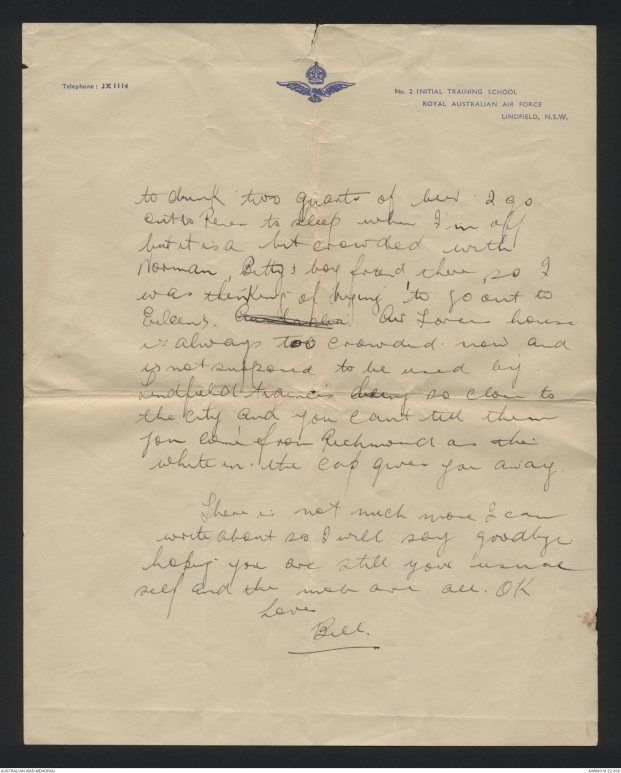 Telephone: JX1114
No. 2 INITIAL TRAINING SCHOOL
ROYAL AUSTRALIAN AIR FORCE
LINDFIELD, N.S.W.
to drunk two quarts of beer. I go
out to to sleep when I'm off
but it is a bit crowded with
Norman, Bettys boy friend there, so I
was thinking of trying to go out to
Eileens. Air Force house
is always too crowded now and
is not supposed to be used by
Lindfield trainees being so close to
the city and you cant tell them
you come from Richmond as the
white in the cap gives you away.
There is not much more I can
write about so I will say goodbye
hoping you are still your usual
self and the mob are all. OK
Love
Bill.
AUSTRALIAN WAR MEMORIAL